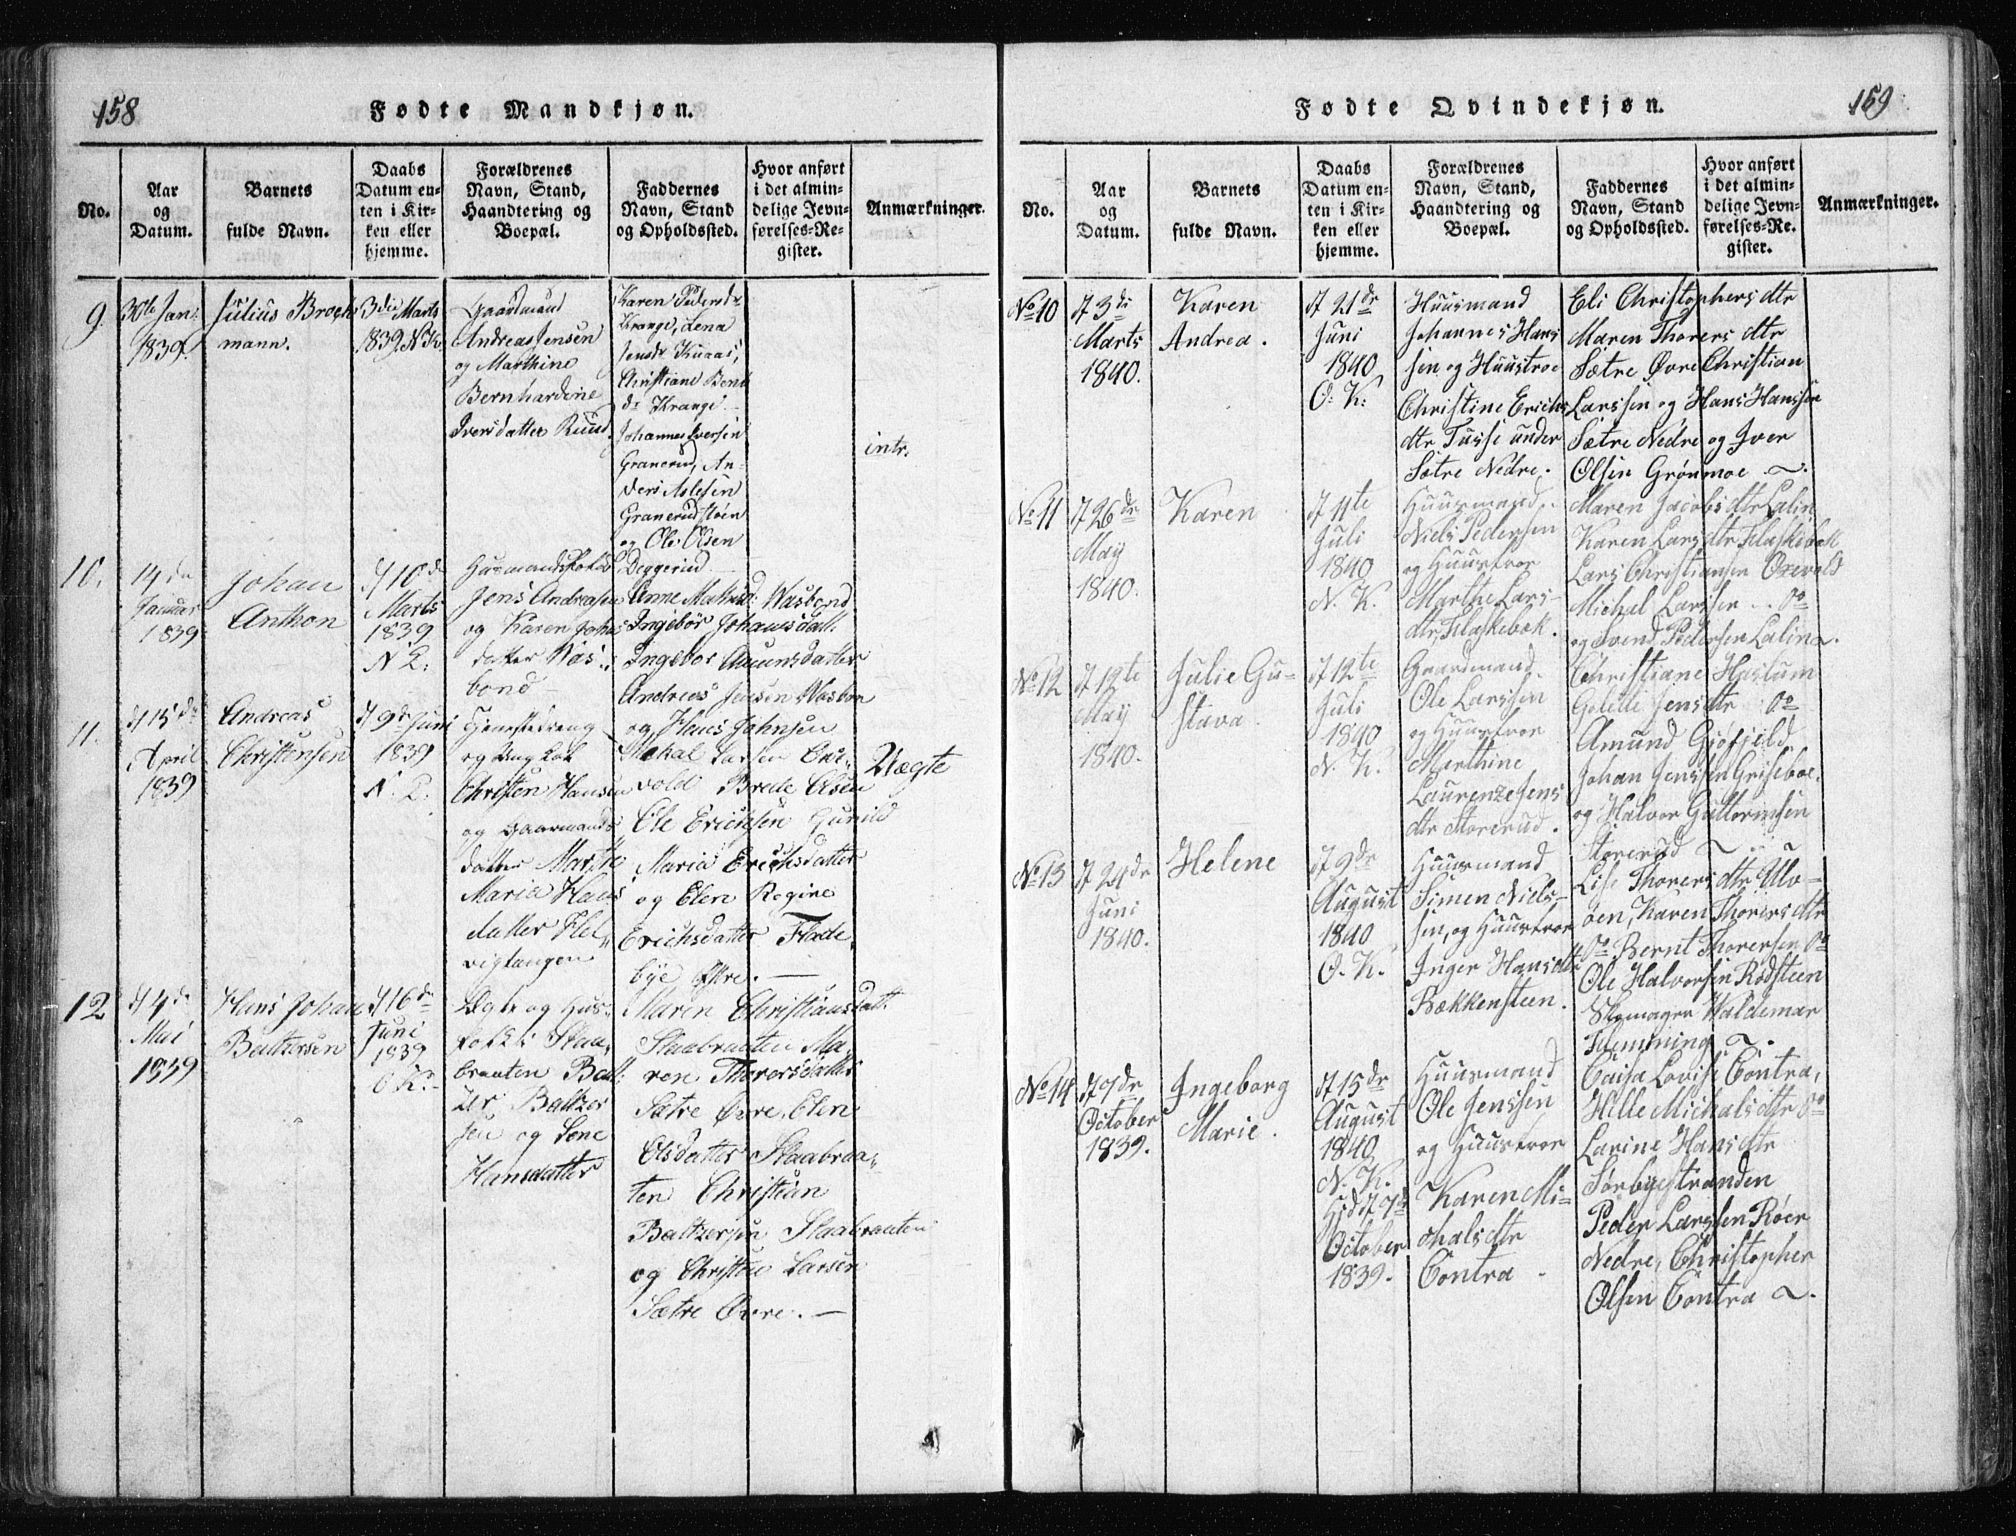 158
Fødte Mandkjøn.
No.
Aar
og
Datum.
Barnets
fulde Navn.
Daabs
Datum en-
ten i Kir-
ken eller
hjemme.
Forældrenes
Navn, Stand,
Haandtering og
Boepæl.
Faddernes
Navn, Stand
og Opholdssted.
Hvor anført
i det almin-
delige Jevn-
førelses-Re-
gister.
Anmærkninger.
9.
30te Jan:
1839.
Julius Broch
mann.
3die Marts
1839. N.K.
Gaardmand
Andreas Jensen
og Marthine
Bernhardine
Iversdatter Ruud.
Karen Pedersdr
Krange, Lena
Jensdr
Christiane
dr Krange
Johannes Iversen
Granerud, An-
ders Aslesen
Granerudstøen
og Ole Olsen
Deggerud
intr.
10.
14de
Januar
1839
Johan
Anthon
d 10d
Marts
1839
N K.
Jens Andreasen
og Karen Johns
datter Vas-
bond
Anne Mathisd: Wasbond
Ingebor Johansdatt.
Ingebor Amunsdatter
Andreas Jensen Wasbon
og Hans Johnsen
11.
d 15de
April
1839
Andreas
Christensen
d 9de Juni
1839
N. K.
Tjenestedreng
og Ungkal
Christen Hansen
og Gaarmands
datter Marthe
Maria Hans
datter Hel-
vigtangen
Mekal Larsen Ore-
vold Brede Olsen
Ole Ericksen Gunild
Maria Erichsdatter
og Elen Regine
Erichsdatter Flade-
bye Øfre. —
Uægte
12
d 4de
Mai
1839
Hans Johan
Baltzersen
d 16de
Juni
1839
O K.
Ægte og Hus-
folk: Staa-
braaten Balt-
zer Baltzer
sen og Lene
Hansdatter
Maren Christiansdatt.
Staabraaten Ma-
ren Thorersdatter
Sætre Øvre, Elen
Olsdatter Staabraa-
ten Christian
Baltzersen Staabraaten
og Christen Larsen
Sætre Øvre. —
159
Fødte Qvindekjøn.
No.
Aar
og
Datum.
Barnets
fulde Navn.
Daabs
Datum en-
ten i Kir-
ken eller
hjemme.
Forældrenes
Navn, Stand,
Haandtering og
Boepæl.
Faddernes
Navn, Stand
og Opholdssted.
Hvor anført
i det almin-
delige Jevn-
førelses-Re-
gister.
Anmærkninger.
No 10
d 3di
Marts
1840.
Karen
Andrea.
d 21de
Juni
1840
O. K.
Huusmand
Johannes Hans
sen og Huustroe
Christine Erichs
dtr Tusse under
Sætre Nedre.
Eli Christophersdtr
Maren Thorersdtr
Sætre Øvre Christian
Larssen og Hans Hanssen
Sætre Nedre og Iver
Olsen Grønmoe
No 11
d 26de
May
1840.
Karen
d 11te
Juli
1840
N. K.
Huusmand
Niels Pedersen
og Huustroe
Marthe Lars-
dtr Flaskebæk.
Maren Jacobsdtr Lalin
Karen Larsdtr Flaskebæk
Lars Christiansen Orevold
Michal Larssen do
og Svend Pedersen Lalin.
No 12
d 12te
May
1840.
Julie Gu-
stava.
d 12te
Juli
1840
N. K.
Gaardmand
Ole Larssen
og Huustroe
Marthine
Laurenze Jens
dtr Storerud.
Christiane Haslum
Golette Jensdtr do
Amund Gjøfjeld
Johan Jenssen Griseboe
og Halvor Guttormsen
Storerud
No 13
d 24de
Juni
1840.
Helene
d 9de
August
1840
O. K.
Huusmand
Simen Niels-
sen, og Huustroe
Inger Hansdtr
Bækkensteen.
Lise Thorersdtr Ulv-
øen, Karen Thorersdtr
do Bernt Thorersen do
Ole Halvorsen Rødsteen
Skomager Waldemar
Flemming
No 14
d 7de
October
1839.
Ingeborg
Marie.
d 15de
August
1840
N. K.
Hjd. d 7de
October
1839.
Huusmand
Ole Jenssen
og Huustroe
Karen Mi-
chalsdtr
Contra
Caisa Lovise Contra,
Helle Michalsdtr do
Larine Hansdtr
Sørbyestranden
Peder Larssen Roer
Nedre, Christopher
Olsen Contra